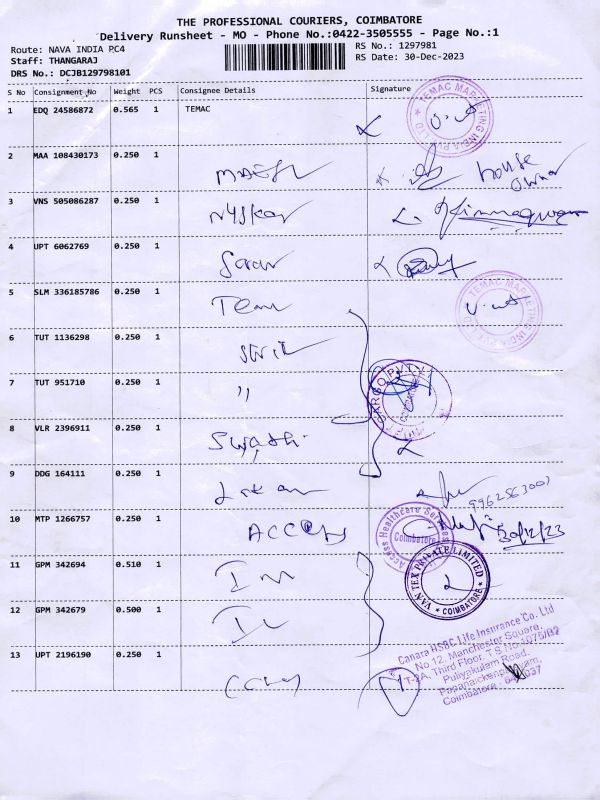 THE PROFESSIONAL COURIERS, COIMBATORE
Delivery Runsheet - MO - Phone No.:0422-3505555 - Page No.:1
Route: NAVA INDIA PC4
RS No.: 1297981
Staff: THANGARAJ
RS Date: 30-Dec-2023
DRS No.: DCJB129798101
S No Consignment No Weight PCS Consignee Details Signature
1 EDQ 24586872 0.565 1 TEMAC
TEMAC MARKETING INDIA PVT LTD
2 MAA 108430173 0.250 1
house
owner
3 VNS 505086287 0.250 1
4 UPT 6062769 0.250 1
5 SLM 336185786 0.250 1 Team
TEMAC MARKETING INDIA PVT LTD
6 TUT 1136298 0.250 1
7 TUT 951710 0.250 1 "
CARGO PVT
8 VLR 2396911 0.250 1
9 DDG 164111 0.250 1
9962563001
10 MTP 1266757 0.250 1 ACCESS
Access Healthcare Services
Coimbatore
30/12/23
11 GPM 342694 0.510 1
TEX PRIVATE LIMITED
COIMBATORE
12 GPM 342679 0.500 1
13 UPT 2196190 0.250 1
Canara HSBC Life Insurance Co. Ltd
No 12, Manchester Square,
T-2A, Third Floor, T S No 1075/B2
Puliyakulam Road,
Coimbatore